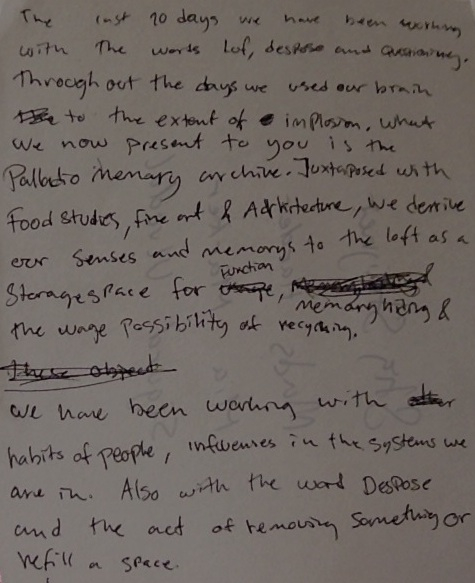 The last 10 days we have been working
with the words Lof, despose and Questioning.
Throughout the days we used our brain
to the extent of implosion. What
we now present to you is the
Palladio memary archive. Juxtaposed with
Food studies, fine art & Adrkitecture, we derive
our senses and memorys to the loft as a
Storage space for Function,
memary hiding &
the wage possibility of recycling.
These object
we have been working with
habits of people, influenses in the systems we
are in. Also with the word Despose
and the act of removing something or
refill a space.